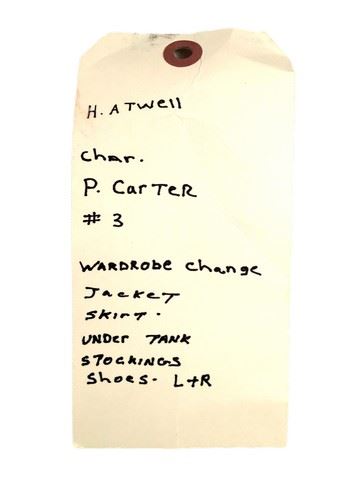 H. ATWell
Char.
P. CarTeR
# 3
WARDRobe Change
Jacket
SKirT.
UNDER TANK
STOCKINGS
Shoes. L+R